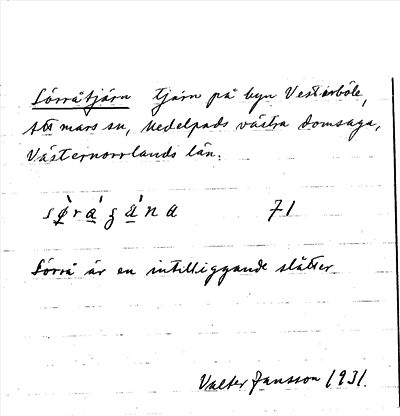 Sörråtjärn tjärn på byn Vesterböle,
Attmars sn, Medelpads västra domsaga,
Västernorrlands län.
71
Sörrå är en intilliggande slåtter
Valter Jansson 1931.